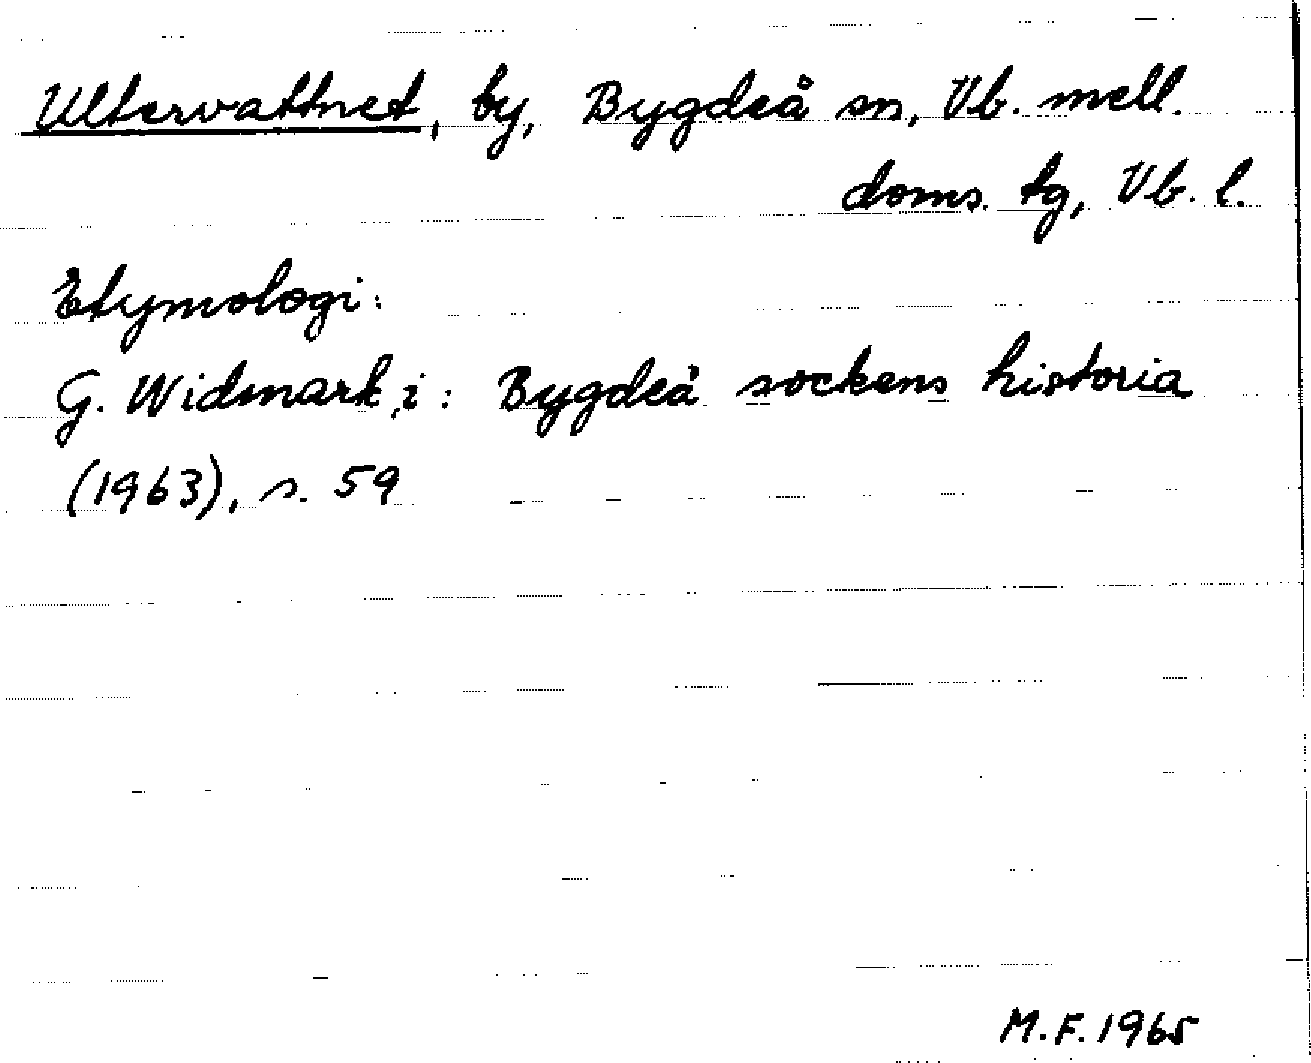 Ultervattnet, by, Bygdeå sn, Vb. mell.
doms. tg, Vb. l.
Etymologi:
G. Widmark, i: Bygdeå sockens historia
(1963), s. 59
M.F. 1965